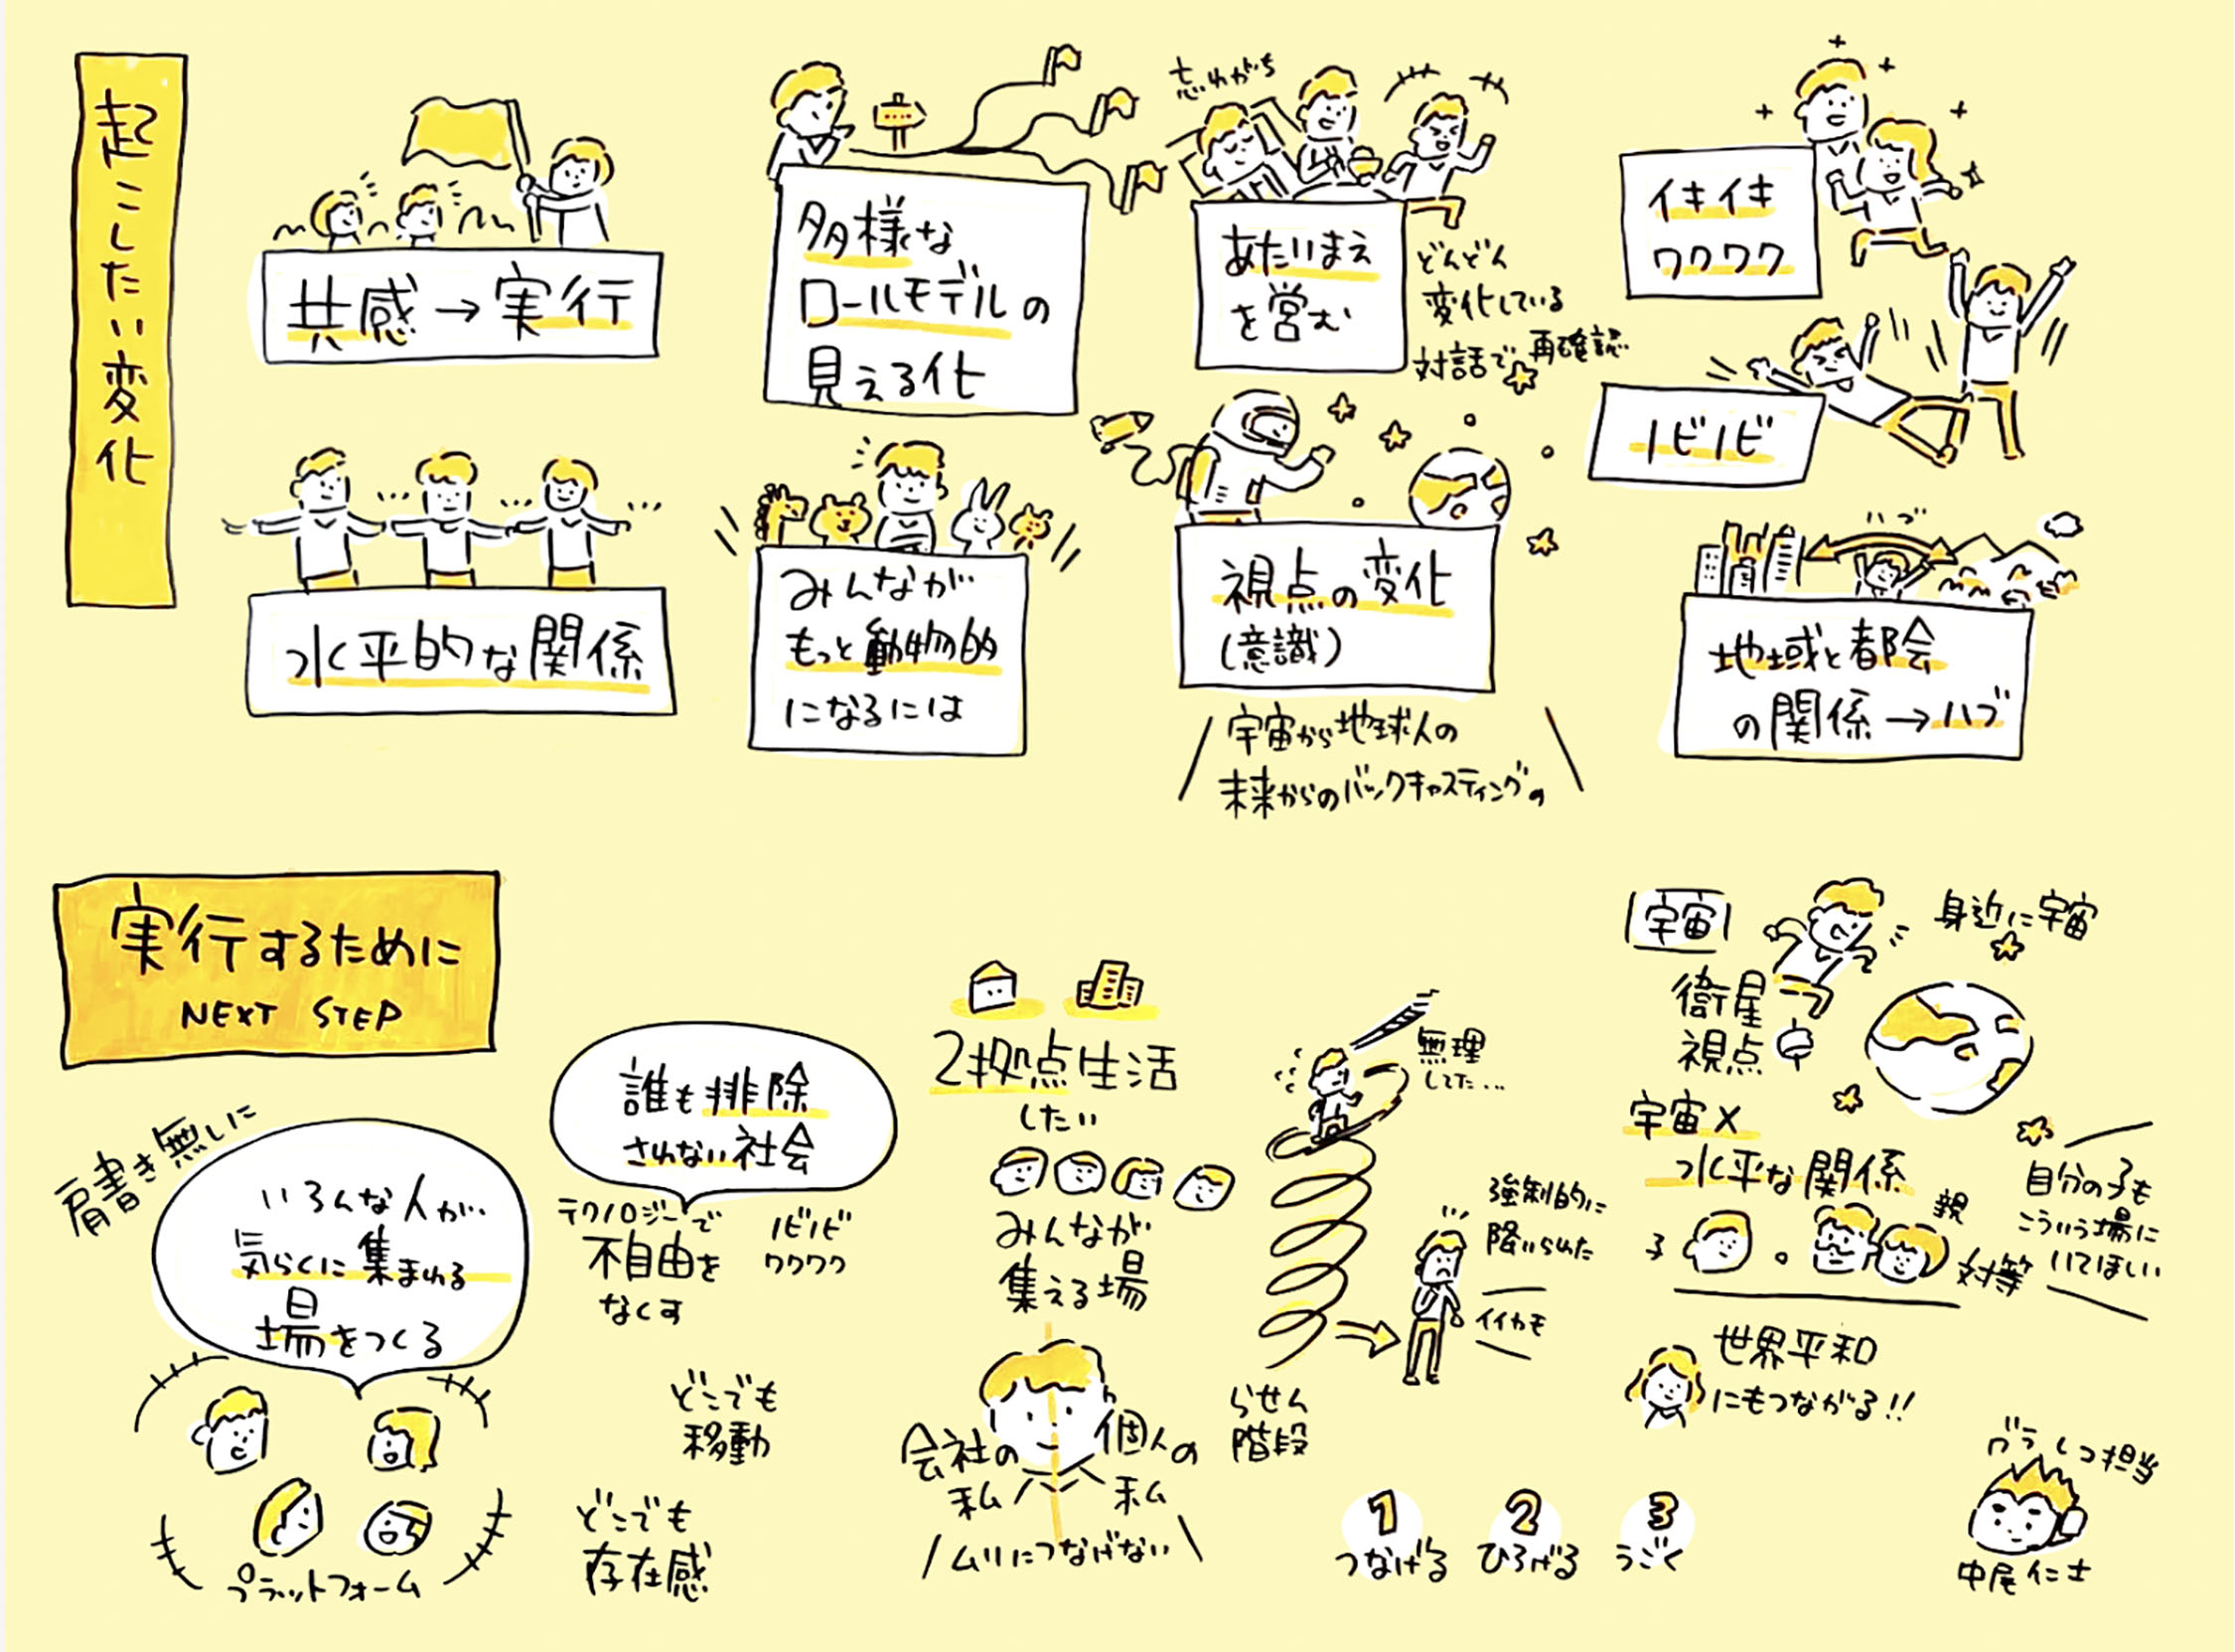 起こしたい変化
共感→実行
多様な
ロールモデルの
見える化
忘れがち
あたりまえ
を営む
どんどん
変化している
対話で再確認
イキイキ
ワクワク
ノビノビ
水平的な関係
みんなが
もっと動物的
になるには
視点の変化
(意識)
宇宙から地球人の
未来からのバックキャスティングの
ハブ
地域と都会
の関係→ハブ
実行するために
NEXT STEP
肩書き無しに
いろんな人が
気らくに集まれる
場をつくる
プラットフォーム
誰も排除
されない社会
テクノロジーで
不自由を
なくす
ノビノビ
ワクワク
どこでも
移動
どこでも
存在感
2拠点生活
したい
みんなが
集える場
会社の
私
個人の
私
ムリにつなげない
無理
してた…
強制的に
降りられた
イイカモ
らせん
階段
1
つなげる
2
ひろげる
3
うごく
宇宙
身近に宇宙
衛星
視点
宇宙×
水平な関係
子
親
対等
自分の子も
こういう場に
いてほしい
世界平和
にもつながる!!
グラレコ担当
中尾仁士